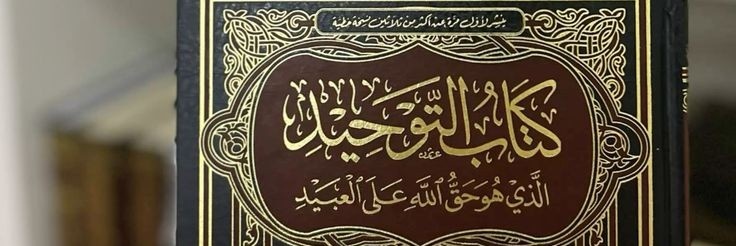 ينشر لأول مرة عن أكثر من ثلاثين نسخة خطية
كتاب التوحيد
الذي هو حق الله على العبيد